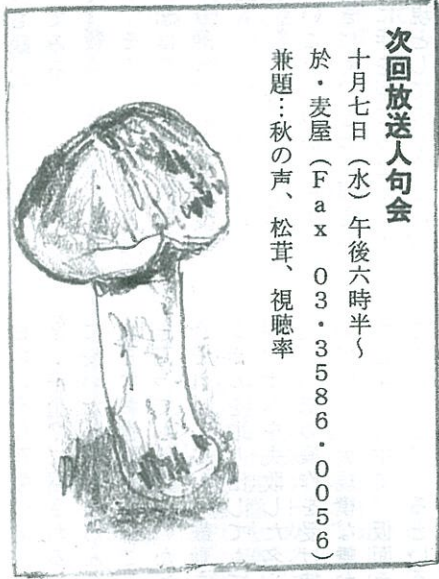 次回放送人句会
十月七日（水）午後六時半～
於・麦屋（Fax 03・3586・0056）
兼題…秋の声、松茸、視聴率